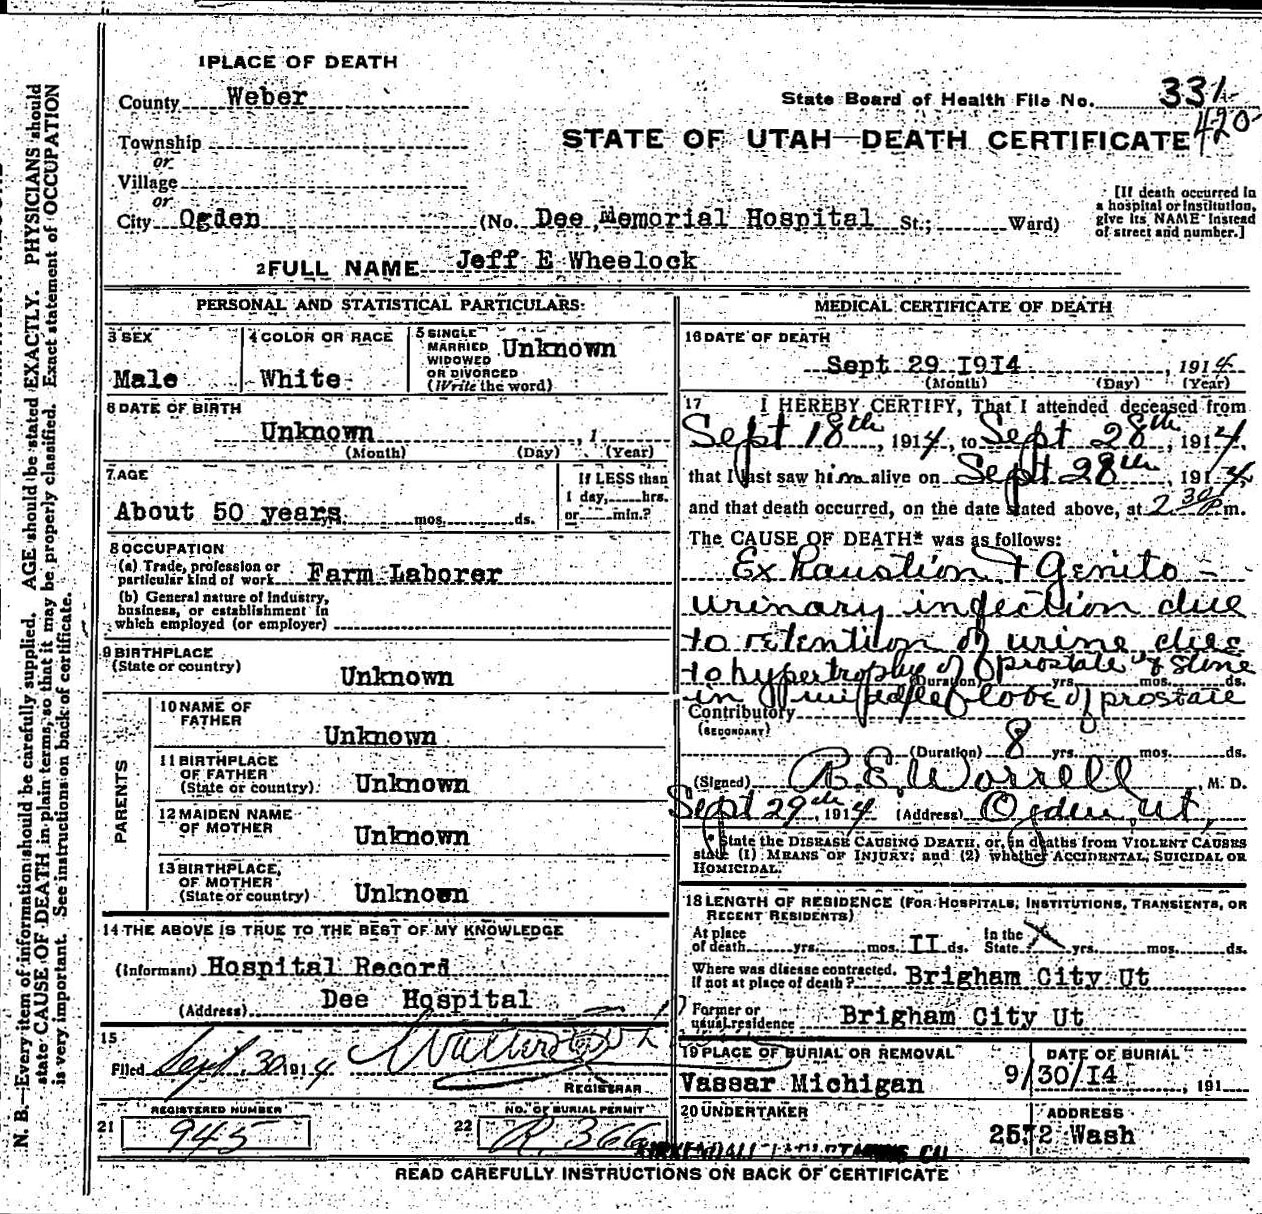 1 PLACE OF DEATH
County Weber
State Board of Health File No. 331-
420-
Township
or
STATE OF UTAH—DEATH CERTIFICATE
Village
or
City Ogden (No. Dee Memorial Hospital St.; Ward)
[If death occurred in
a hospital or institution,
give its NAME instead
of street and number.]
2 FULL NAME Jeff E Wheelock
PERSONAL AND STATISTICAL PARTICULARS
3 SEX
Male
4 COLOR OR RACE
White
5 SINGLE
MARRIED
WIDOWED
OR DIVORCED
(Write the word)
Unknown
6 DATE OF BIRTH
Unknown , 1
(Month) (Day) (Year)
7 AGE
About 50 years mos. ds.
If LESS than
1 day, hrs.
or min.?
8 OCCUPATION
(a) Trade, profession or
particular kind of work Farm Laborer
(b) General nature of Industry,
business, or establishment in
which employed (or employer)
9 BIRTHPLACE
(State or country)
Unknown
PARENTS
10 NAME OF
FATHER
Unknown
11 BIRTHPLACE
OF FATHER
(State or country) Unknown
12 MAIDEN NAME
OF MOTHER
Unknown
13 BIRTHPLACE,
OF MOTHER
(State or country) Unknown
14 THE ABOVE IS TRUE TO THE BEST OF MY KNOWLEDGE
(Informant) Hospital Record
(Address) Dee Hospital
15
Filed Sept. 30 1914
REGISTRAR
REGISTERED NUMBER
21 945
NO. OF BURIAL PERMIT
22 R. 366
MEDICAL CERTIFICATE OF DEATH
16 DATE OF DEATH
Sept 29 I9I4 , 1914
(Month) (Day) (Year)
17 I HEREBY CERTIFY, That I attended deceased from
Sept 18th, 1914, to Sept 28th, 1914.
that I last saw him alive on Sept 28th, 1914,
and that death occurred, on the date stated above, at 2 30 P m.
The CAUSE OF DEATH* was as follows:
Exhaustion & Genito-
urinary infection due
to retention of urine, due
to hypertrophy of prostate & stone
(Duration) yrs. mos. ds.
in middle lobe of prostate
Contributory
(SECONDARY)
(Duration) 8 yrs. mos. ds.
(Signed) R. E. Worrell, M. D.
Sept 29th, 1914 (Address) Ogden, Ut,
*State the DISEASE CAUSING DEATH, or, in deaths from VIOLENT CAUSES
state (1) MEANS OF INJURY; and (2) whether ACCIDENTAL, SUICIDAL OR
HOMICIDAL.
18 LENGTH OF RESIDENCE (FOR HOSPITALS, INSTITUTIONS, TRANSIENTS, OR
RECENT RESIDENTS)
At place
of death yrs. mos. II ds.
In the
State X yrs. mos. ds.
Where was disease contracted,
if not at place of death? Brigham City Ut
Former or
usual residence Brigham City Ut
19 PLACE OF BURIAL OR REMOVAL
Vassar Michigan
DATE OF BURIAL
9/30/I4 , 191
20 UNDERTAKER
ADDRESS
2572 Wash
READ CAREFULLY INSTRUCTIONS ON BACK OF CERTIFICATE
N. B.—Every item of information should be carefully supplied. AGE should be stated EXACTLY. PHYSICIANS should
state CAUSE OF DEATH in plain terms, so that it may be properly classified. Exact statement of OCCUPATION
is very important. See instructions on back of certificate.